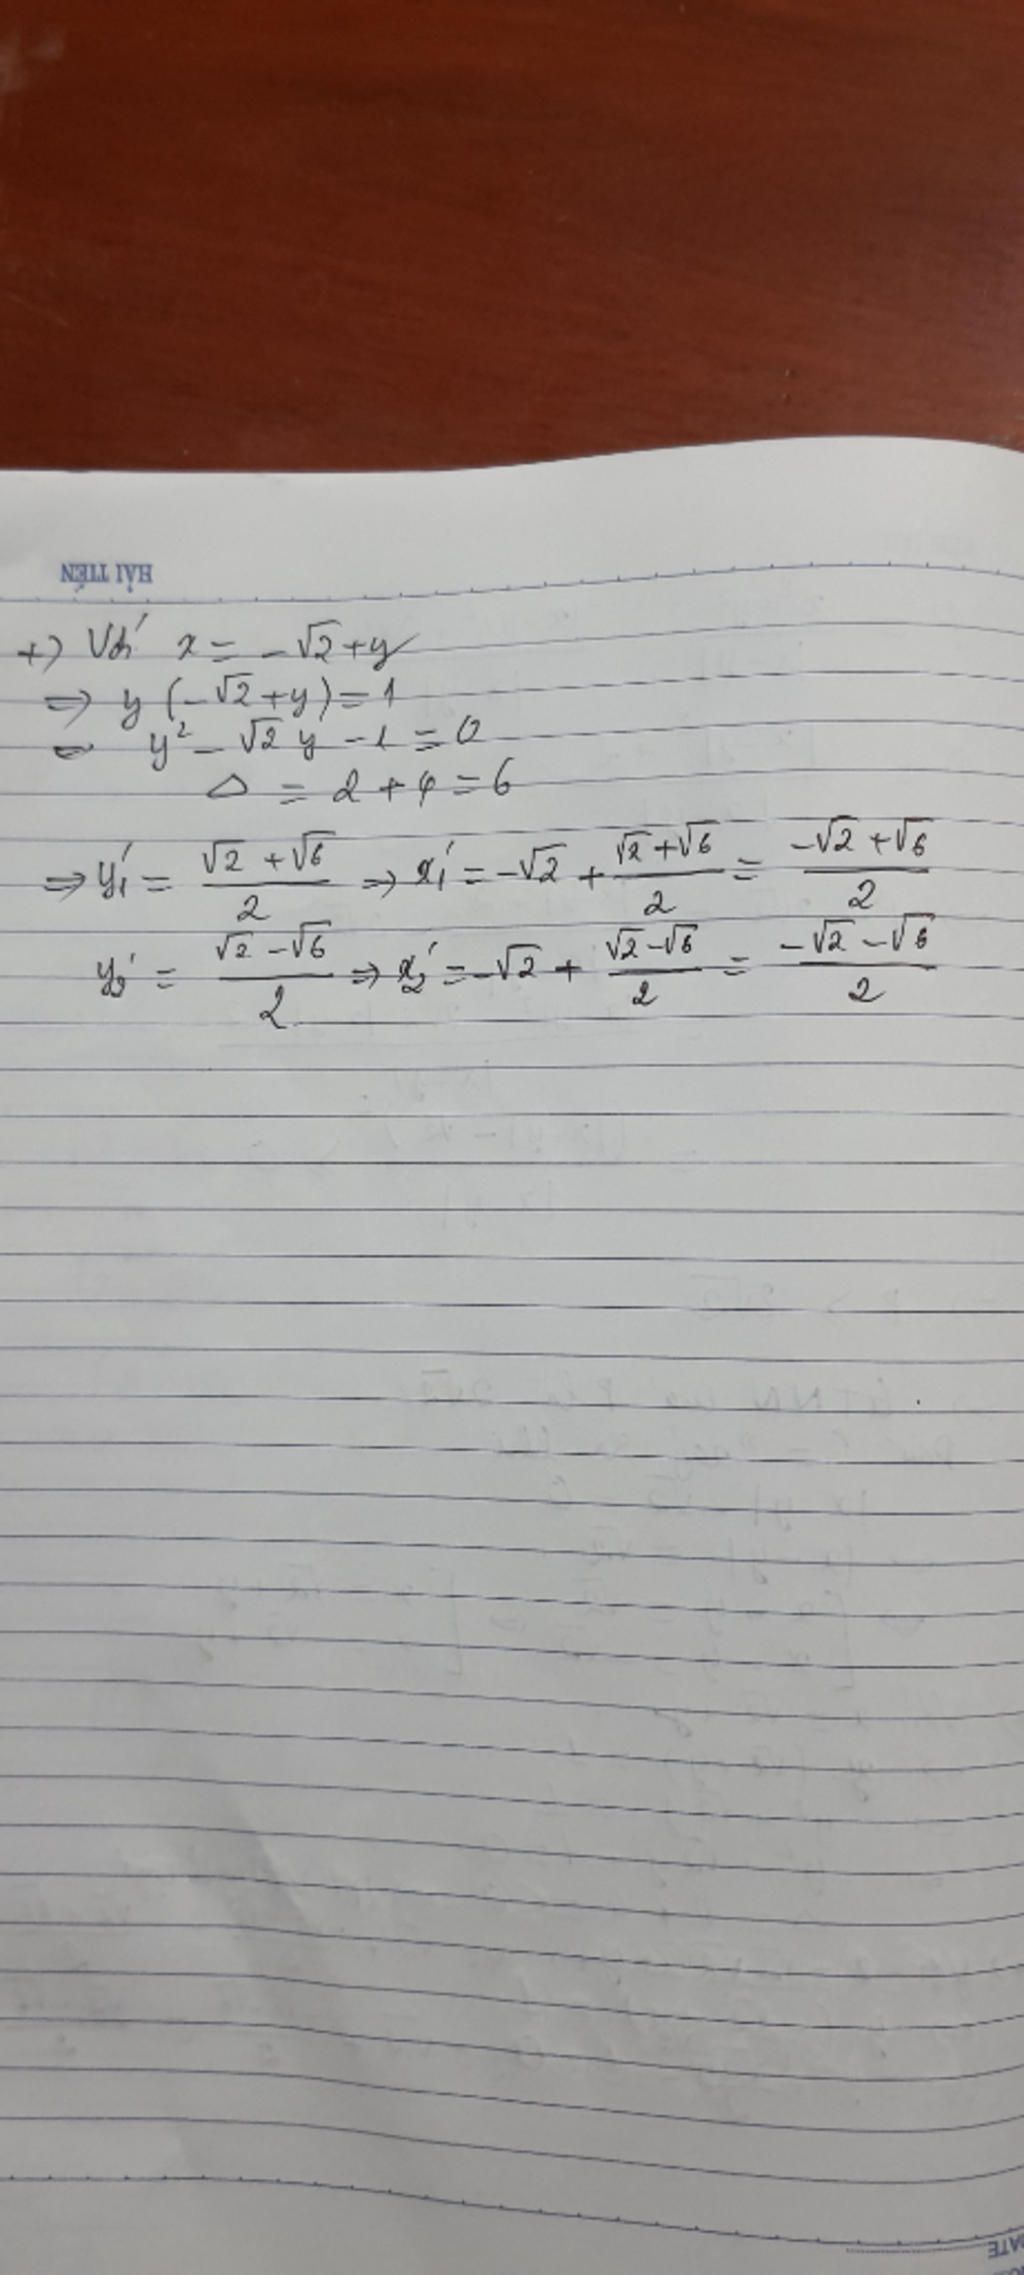 HẢI TIẾN
+) Với x = -√2 + y
=> y (-√2 + y) = 1
⇔ y² - √2 y - 1 = 0
Δ = 2 + 4 = 6
=> y₁' = (√2 + √6)/2 => x₁' = -√2 + (√2 + √6)/2 = (-√2 + √6)/2
y₂' = (√2 - √6)/2 => x₂' = -√2 + (√2 - √6)/2 = (-√2 - √6)/2